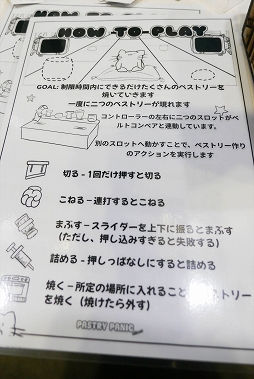 HOW-TO-PLAY
GOAL: 制限時間内にできるだけたくさんのペストリーを
焼いていきます
一度に二つのペストリーが現れます
コントローラーの左右に二つのスロットがベ
ルトコンベアと連動しています。
別のスロットへ動かすことで、ペストリー作り
のアクションを実行します
切る - 1回だけ押すと切る
こねる - 連打するとこねる
まぶす - スライダーを上下に振るとまぶす
(ただし、押し込みすぎると失敗する)
詰める - 押しっぱなしにすると詰める
焼く - 所定の場所に入れること ストリー
を焼く (焼けたら外す)
PASTRY PANIC